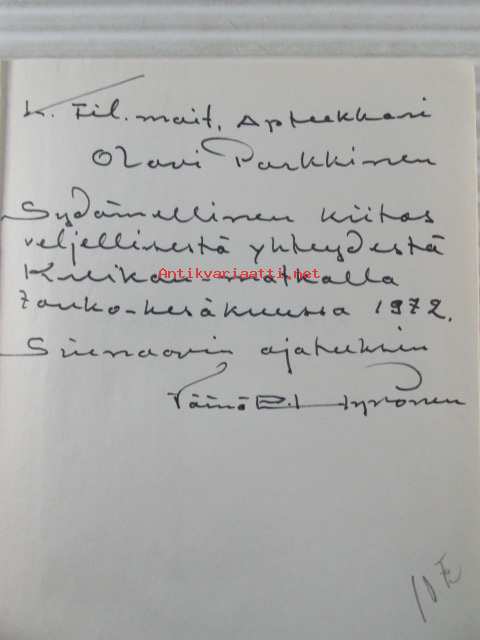 K. Fil. mait. Apteekkari
Olavi Parkkinen
Sydämellinen kiitos
veljellisestä yhteydestä
Kreikan-matkalla
Touko-kesäkuussa 1972.
Siunaavin ajatuksin
Väinö
Antikvariaatti.net
10